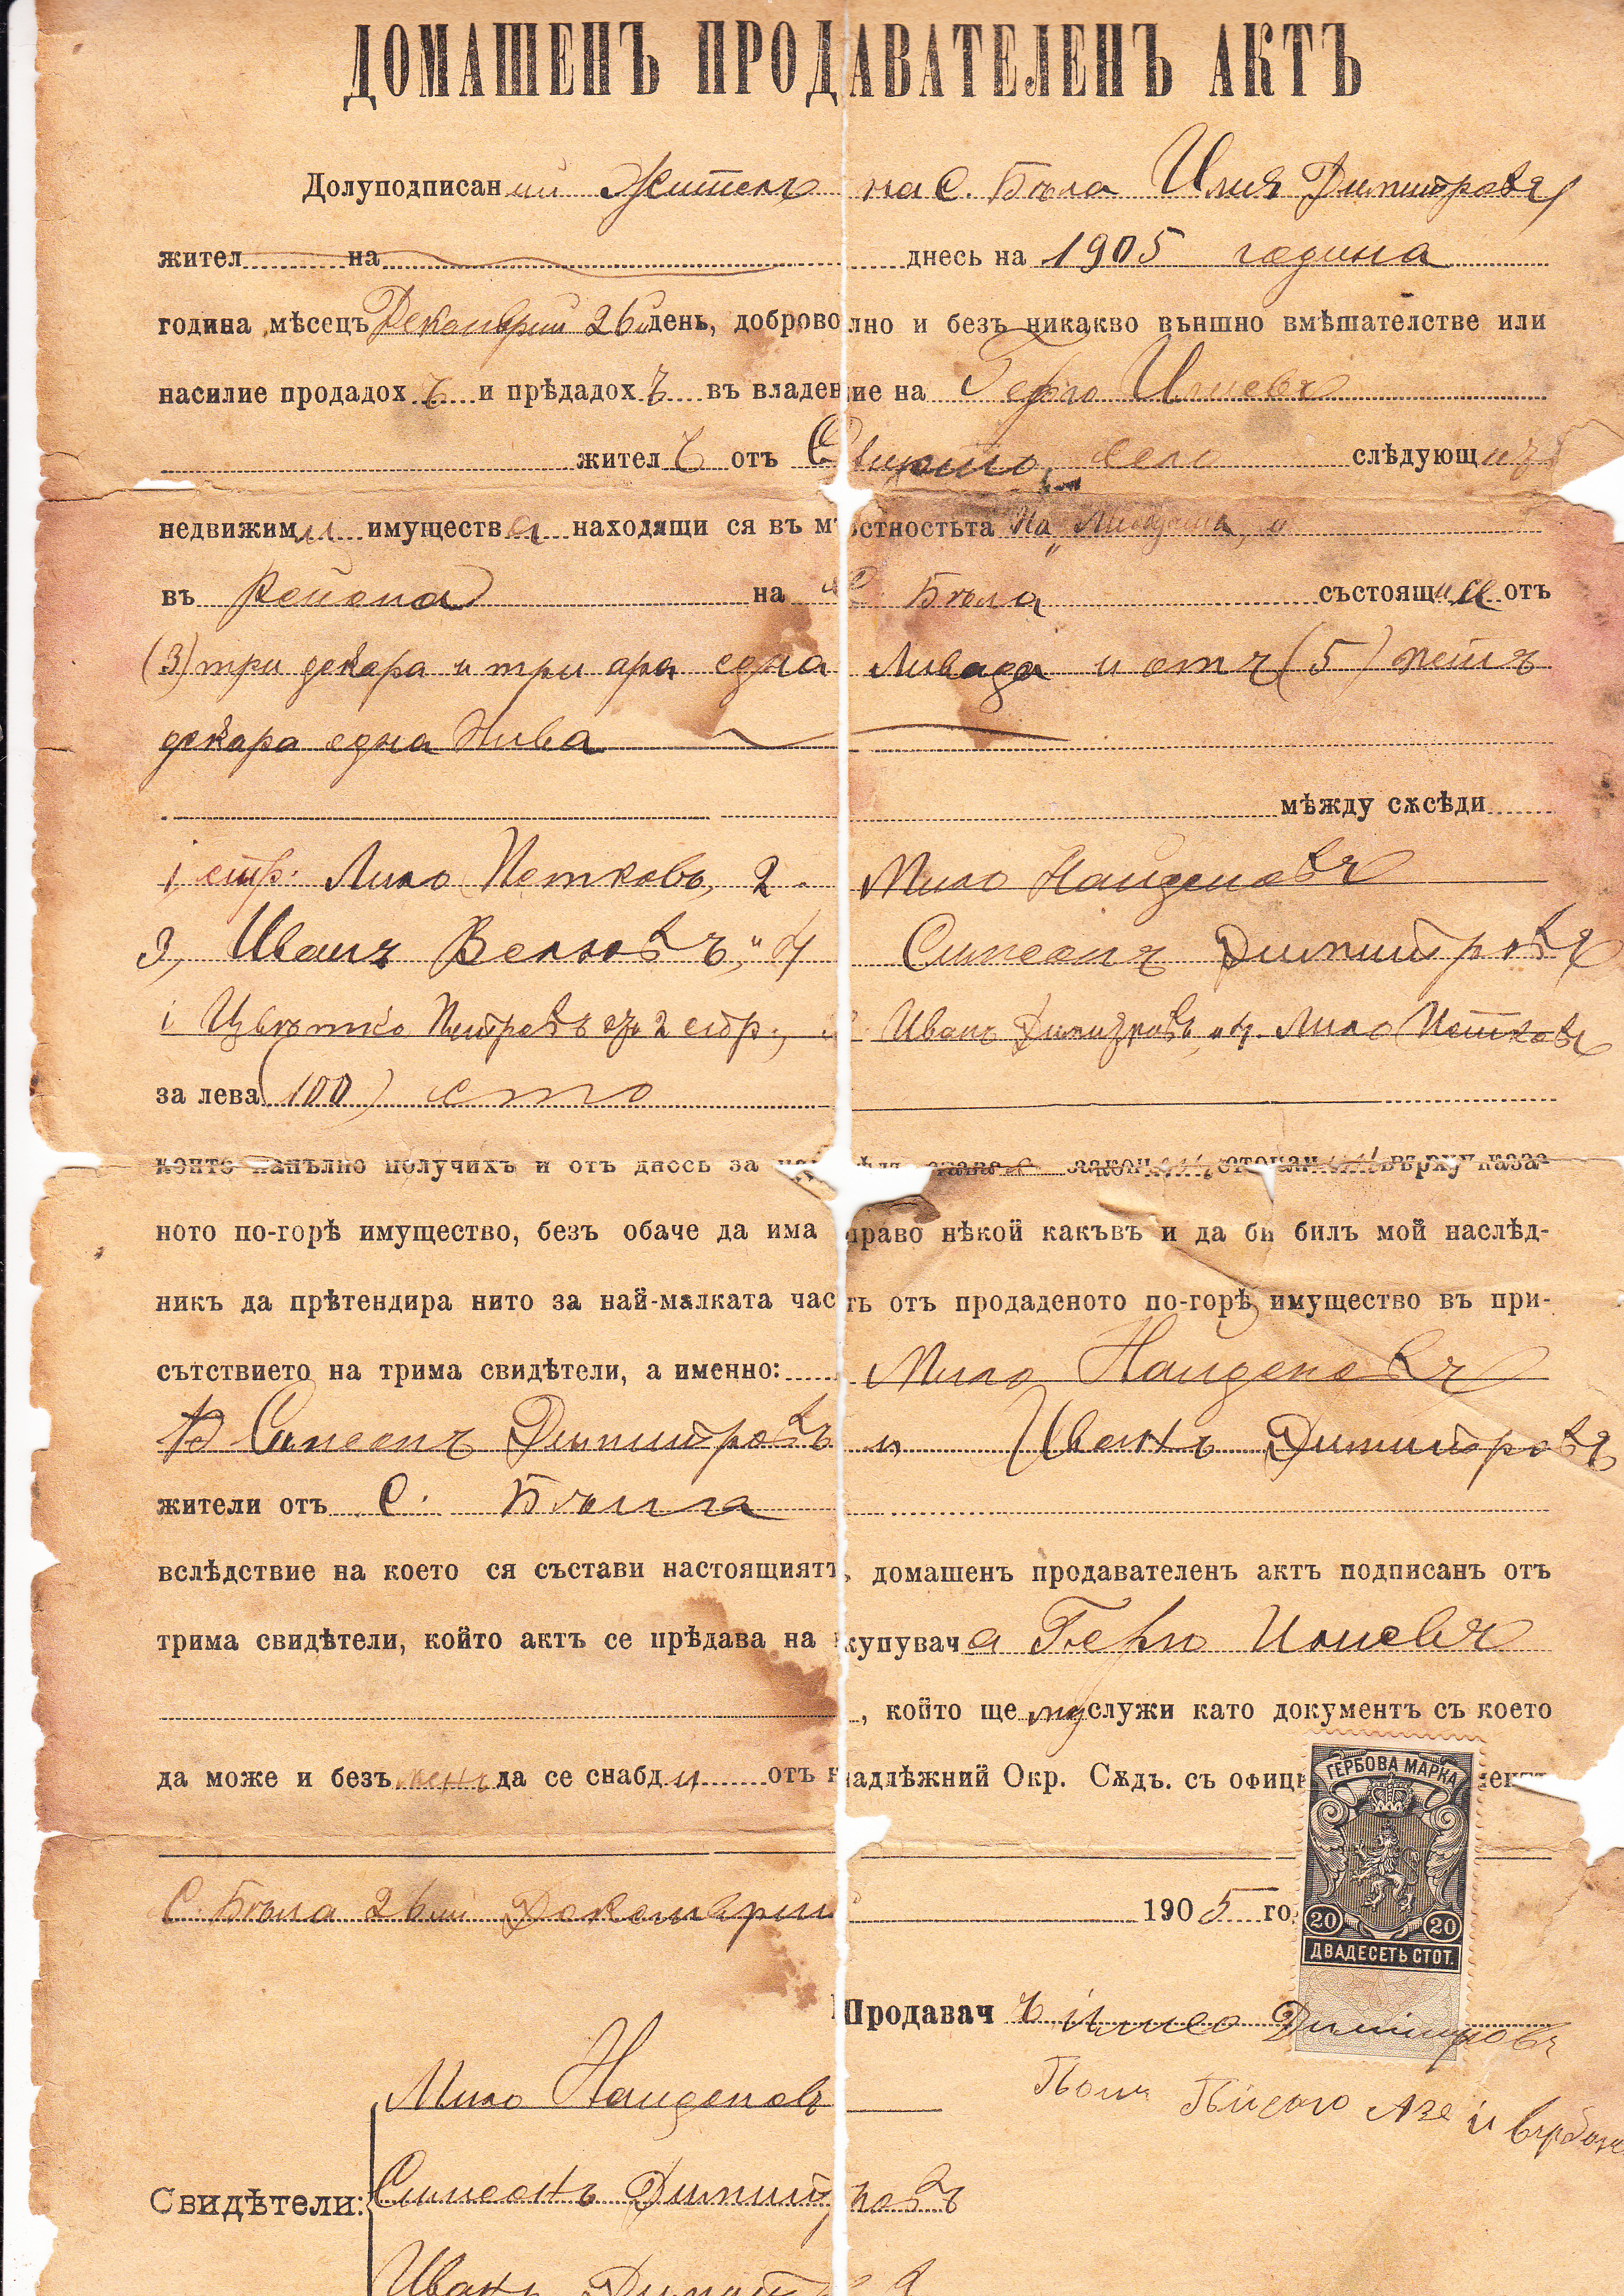 ДОМАШЕНЪ ПРОДАВАТЕЛЕНЪ АКТЪ
Долуподписаний Жителъ на С. Бѣла Илия Димитровъ
жител на днесь на 1905 година
година мѣсецъ Декемврий 26й день, доброволно и безъ никакво външно вмѣшателстве или
насилие продадохъ и прѣдадохъ въ владение на Герго Илиевъ
жителъ отъ село слѣдующия
недвижими имущества находящи ся въ мѣстностьта на „Ливадата„ и
въ района на С Бѣла състоящи се отъ
(3) три декара и три ара една Ливада и отъ (5) петъ
декара една Нива
мѣжду сѫсѣди
1, стр. Лило Петковъ, 2. Мило Найденовъ
3, Иванъ Велковъ, „ 4 Симеонъ Димитровъ
1 Цвѣтко Петровъ 2 стр., Иванъ Димитровъ, 4. Лило Петковъ
за лева (100) сто
които напълно получихъ и отъ днесь за става закон стопан върху каза-
ното по-горѣ имущество, безъ обаче да има право нѣкой какъвъ и да би билъ мой наслѣд-
никъ да прѣтендира нито за най-малката часть отъ продаденото по-горѣ имущество въ при-
сътствието на трима свидѣтели, а именно: Мило Найденовъ
Симеонъ Димитровъ и Иванъ Димитровъ
жители отъ С. Бѣлла
вслѣдствие на което ся състави настоящиятъ, домашенъ продавателенъ актъ подписанъ отъ
трима свидѣтели, който актъ се прѣдава на купувача Герго Илиевъ
, който ще му служи като документъ съ което
да може и безъ менъ да се снабди отъ надлѣжний Окр. Сѫдъ. съ офици
ГЕРБОВА МАРКА
20 20
ДВАДЕСЕТЬ СТОТ.
С. Бѣла 26ий Декемврий 1905 го
Продавачъ Илиа Димитровъ
Мило Найденовъ
Свидѣтели: Симеонъ Димитровъ
Иванъ